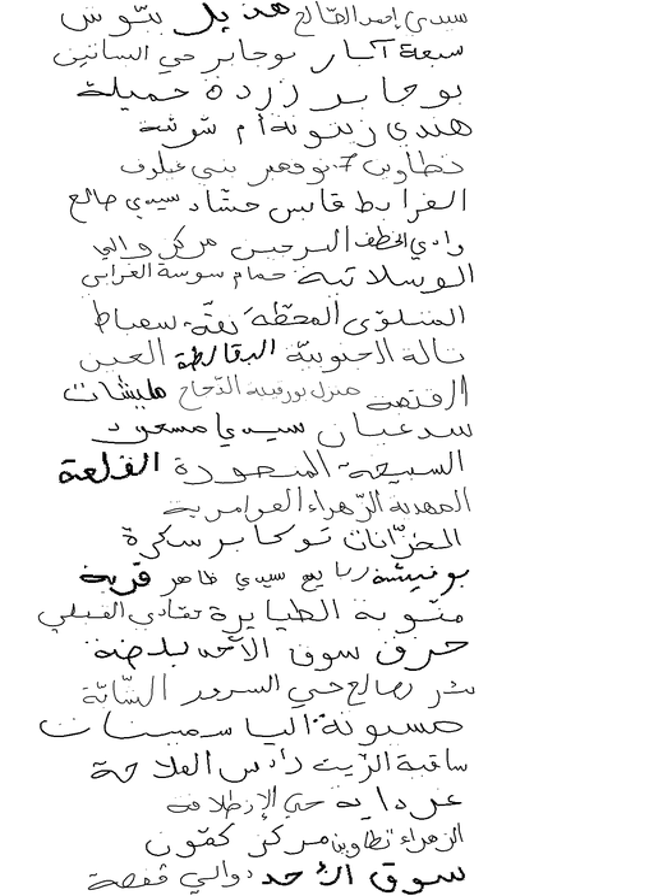 سيدي إحمد الصّالح هذيل بتّوش
سبعة آبار بوجابر حي البساتين
بوجابر زردة جميلة
هندي زيتونة أم شوشة
تطاوين 7 نوفمبر بني غيلوف
الفرايط قابس حشّاد سيدي صالح
وادي الخطف البرجين مركز والي
الوسلاتية حمام سوسة الغرابي
المتلوّي المحطّة نقّة سعباط
تالة الجنوبيّة البقالطة العين
القنّصة منزل بورقيبة الدّخاخ مليشات
سدعيان سيدي مسعود
السبيعة المنجورة القلعة
المهدية الزّهراء العوامرية
الخزّانات توكابر سكرة
بوفيشة ربايع سيدي ظاهر قرية
منّوبة الطيايرة تفادي القبلي
حرف سوق الأحد بلضة
بئر صالح حي السرور السّاتّة
حسيونة الياسمينات
ساقية الزّيت رادس الملاحة
غرداية حي الإنطلاقة
الزهراء تطاوين مركز كمّون
سوق الأحد دوالي قفصة